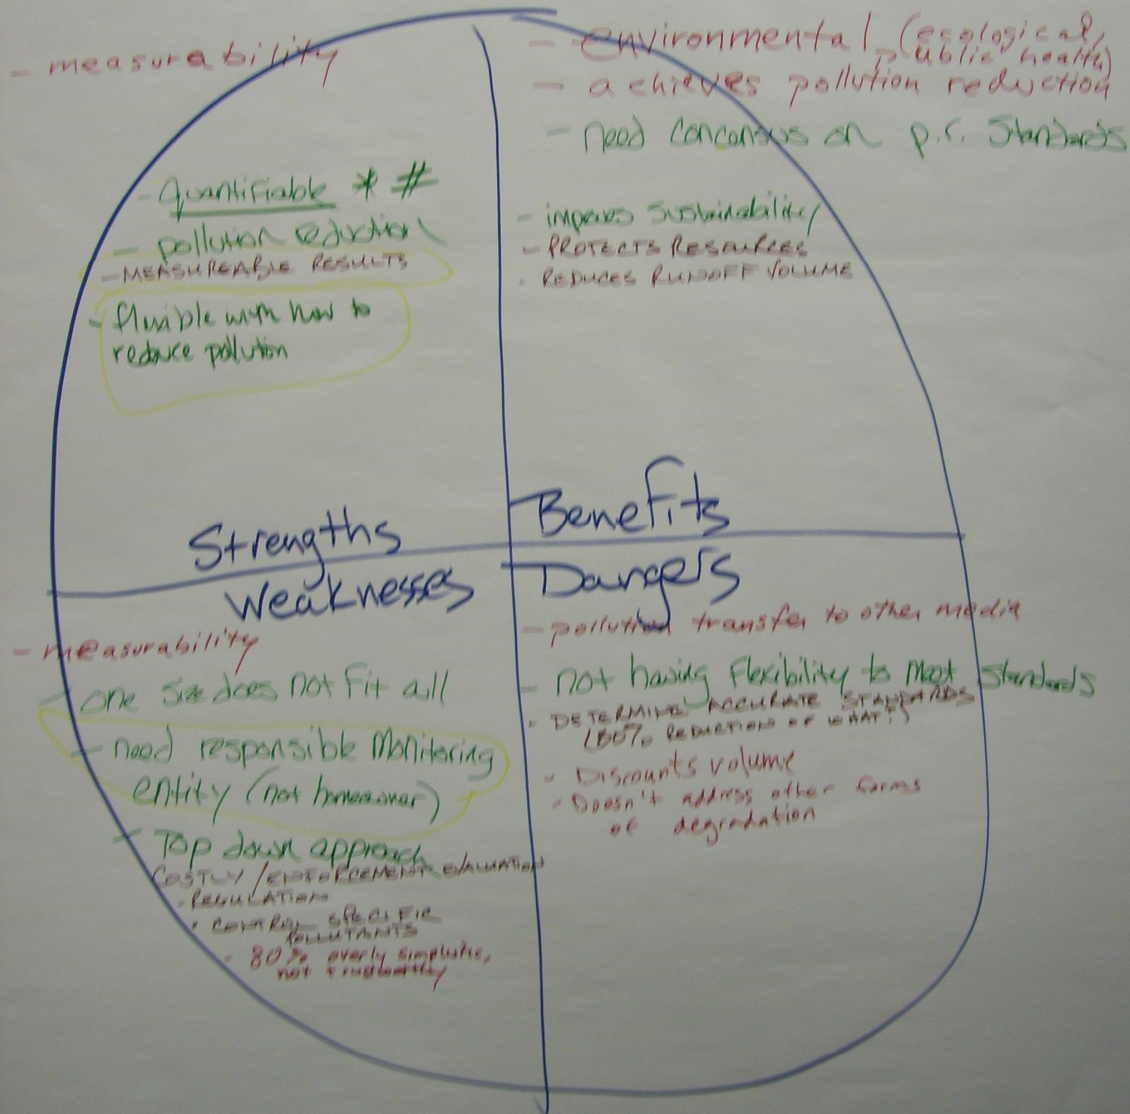 - measurability
- quantifiable * #
- pollution reduction
- MEASUREABLE RESULTS
- flexible with how to
reduce pollution
Strengths
- environmental (ecological,
public health)
- achieves pollution reduction
- need concensus on p.r. standards
- improves sustainability
- PROTECTS RESOURCES
- REDUCES RUNOFF VOLUME
Benefits
Weaknesses
- measurability
- one size does not fit all
- need responsible monitoring
entity (not homeowner)
- Top down approach
COSTLY / ENFORCEMENT EVALUATION
- REGULATION
- CONTROL SPECIFIC
POLLUTANTS
- 80% overly simplistic,
not trustworthy
Dangers
- pollution transfer to other media
- not having flexibility to meet standards
- DETERMINE ACCURATE STANDARDS
(80% REDUCTION OF WHAT?)
- Discounts volume
- Doesn't address other forms
of degradation